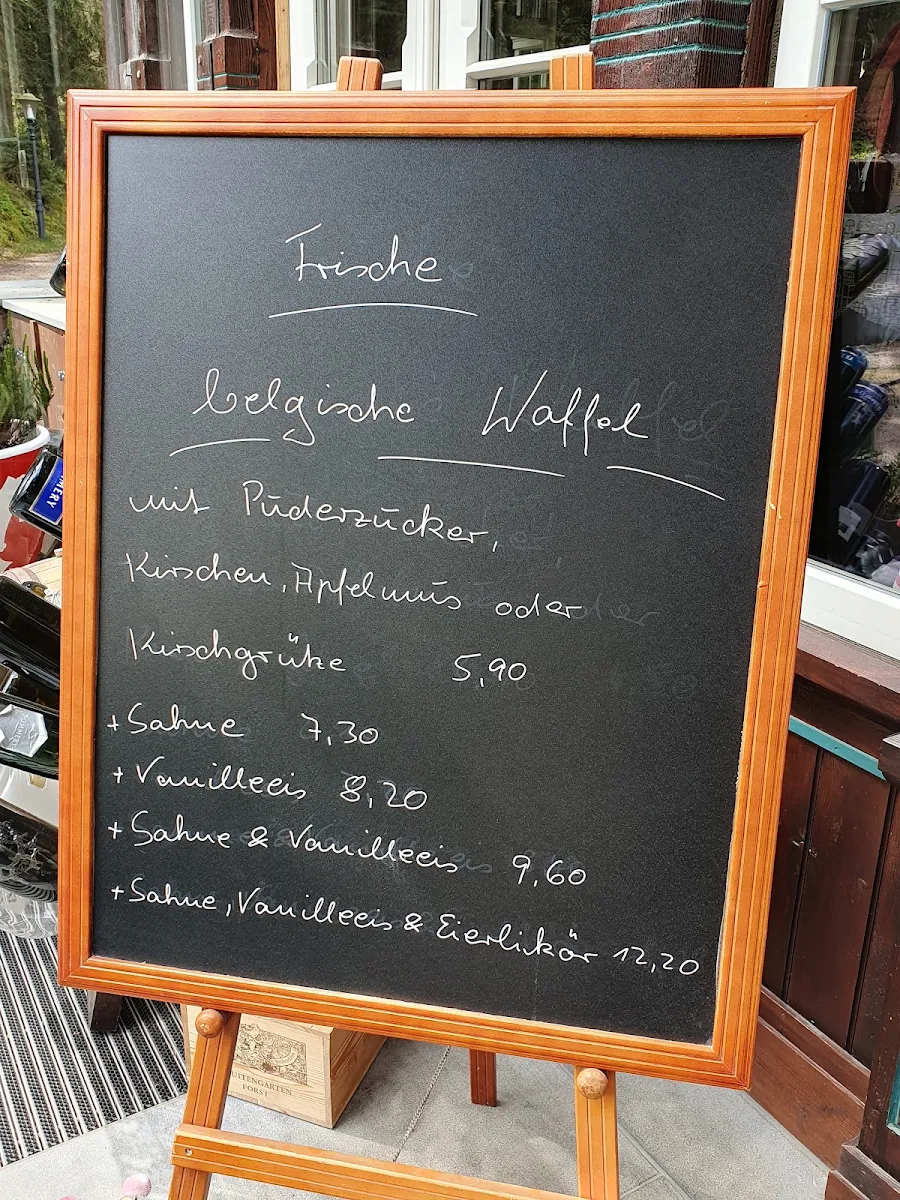 Frische
belgische Waffel
mit Puderzucker,
Kirschen, Apfelmus oder
Kirschgrütze 5,90
+ Sahne 7,30
+ Vanilleeis 8,20
+ Sahne & Vanilleeis 9,60
+ Sahne, Vanilleeis & Eierlikör 12,20
UITENGARTEN
FORST